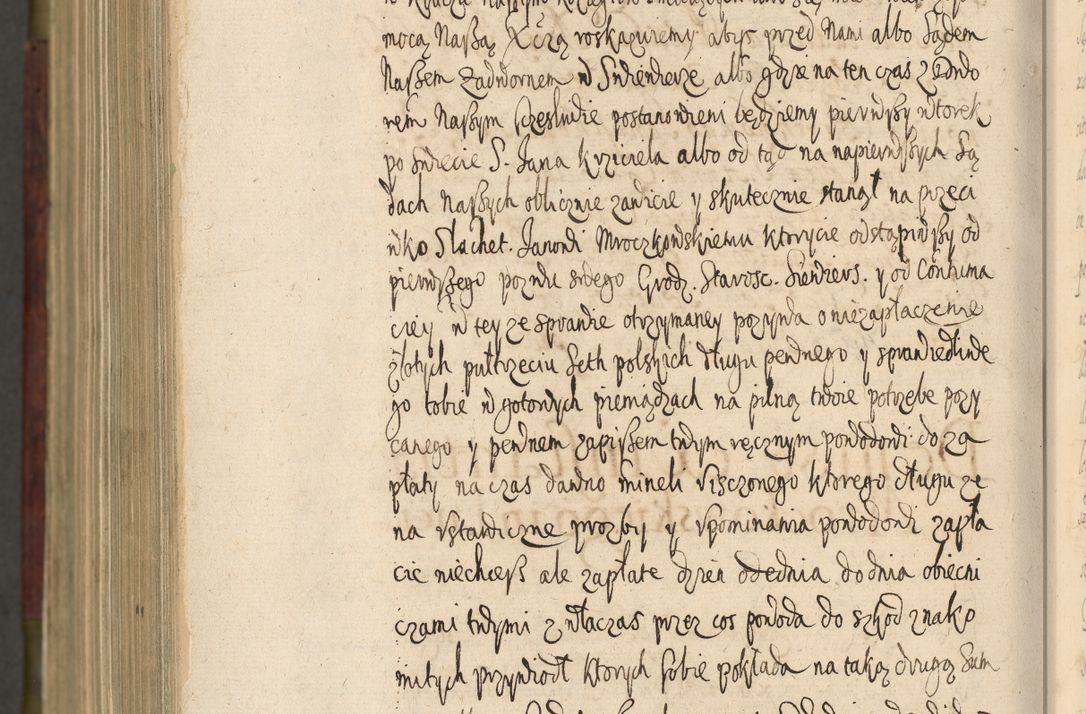 mocą Naszą Xczą roskazuiemy abys przed Nami albo Sądem
Naszem Zadwornem w Swiendierze albo gdzie na ten czas z Dwo
rem Naszym sczesliwie postanowieni będziemy pierwszy wtorek
po swiecie S. Jana krziciela albo od tąd na napierwszych Są
dach Naszych oblicznie zawicie y skutecznie stanął na przeci
wko Slachet. Janowi Mroczkowskiemu ktorycie odstąpiwszy od
pierwszego pozwu swego Grodz. Starosc. Siendiers. y od Contuma
ciey w tey ze sprawie otrzymaney pozywa o niezapłaczenie
złotych pułtrzeciu seth polskich długu pewnego y sprawiedliwe
go tobie w gotowych pieniądzach na pilną twoie potrzebe pozy
canego y pewnem zapissem twym ręcznym powodowi do za
płaty na czas dawno mineli visczonego ktorego długu ze
na vstawiczne prozby y vpominania powodowi zapła
cic niechcesz ale zapłate dzien ode dnia do dnia obiecni
czami twymi zwłaczas przez cos powoda do szkod znako
mitych przywiodł ktorych sobie pokłada na taką drugą Sum